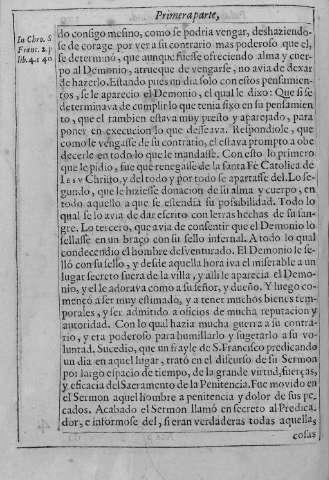 Primera parte,
In Chro. S.
Franc. 2. p
lib. 4. c 40
do consigo mesmo, como se podria vengar, deshaziendo-
se de corage por ver a su contrario mas poderoso que el,
se determinò, que aunque fuesse ofreciendo alma y cuer-
po al Demonio, atrueque de vengarse, no avia de dexar
de hazerlo. Estando pues un dia solo con estos pensamien-
tos, se le aparecio el Demonio, el qual le dixo: Que si se
determinava de cumplir lo que tenia fixo en su pensamien
to, que el tambien estava muy presto y aparejado, para
poner en execucion lo que desseava. Respondiole, que
como le vengasse de su contrario, el estava prompto a obe
decerle en todo lo que le mandasse. Con esto lo primero
que le pidio, fue que renegasse de la santa Fè Catolica de
Iesv Christo, y del todo y por todo se apartasse del. Lo se-
gundo, que le hiziesse donacion de su alma y cuerpo, en
todo aquello a que se estendia su possibilidad. Todo lo
qual se lo avia de dar escrito con letras hechas de su san-
gre. Lo tercero, que avia de consentir que el Demonio lo
sellasse en un braço con su sello infernal. A todo lo qual
condecendio el hombre desventurado. El Demonio le se-
llò con su sello, y desde aquella hora iva el miserable a un
lugar secreto fuera de la villa, y alli le aparecia el Demo-
nio, y el le adorava como a su señor, y dueño. Y luego co-
mençò a ser muy estimado, y a tener muchos bienes tem-
porales, y ser admitido a oficios de mucha reputacion y
autoridad. Con lo qual hazia mucha guerra a su contra-
rio, y era poderoso para humillarlo y sugetarlo a su vo-
luntad. Sucedio, que un frayle de S. Francisco predicando
un dia en aquel lugar, tratò en el discurso de su Sermon
por largo espacio de tiempo, de la grande virtud, fuerças,
y eficacia del Sacramento de la Penitencia. Fue movido en
el Sermon aquel hombre a penitencia y dolor de sus pe-
cados. Acabado el Sermon llamò en secreto al Predica-
dor, e informose del, si eran verdaderas todas aquellas
cosas